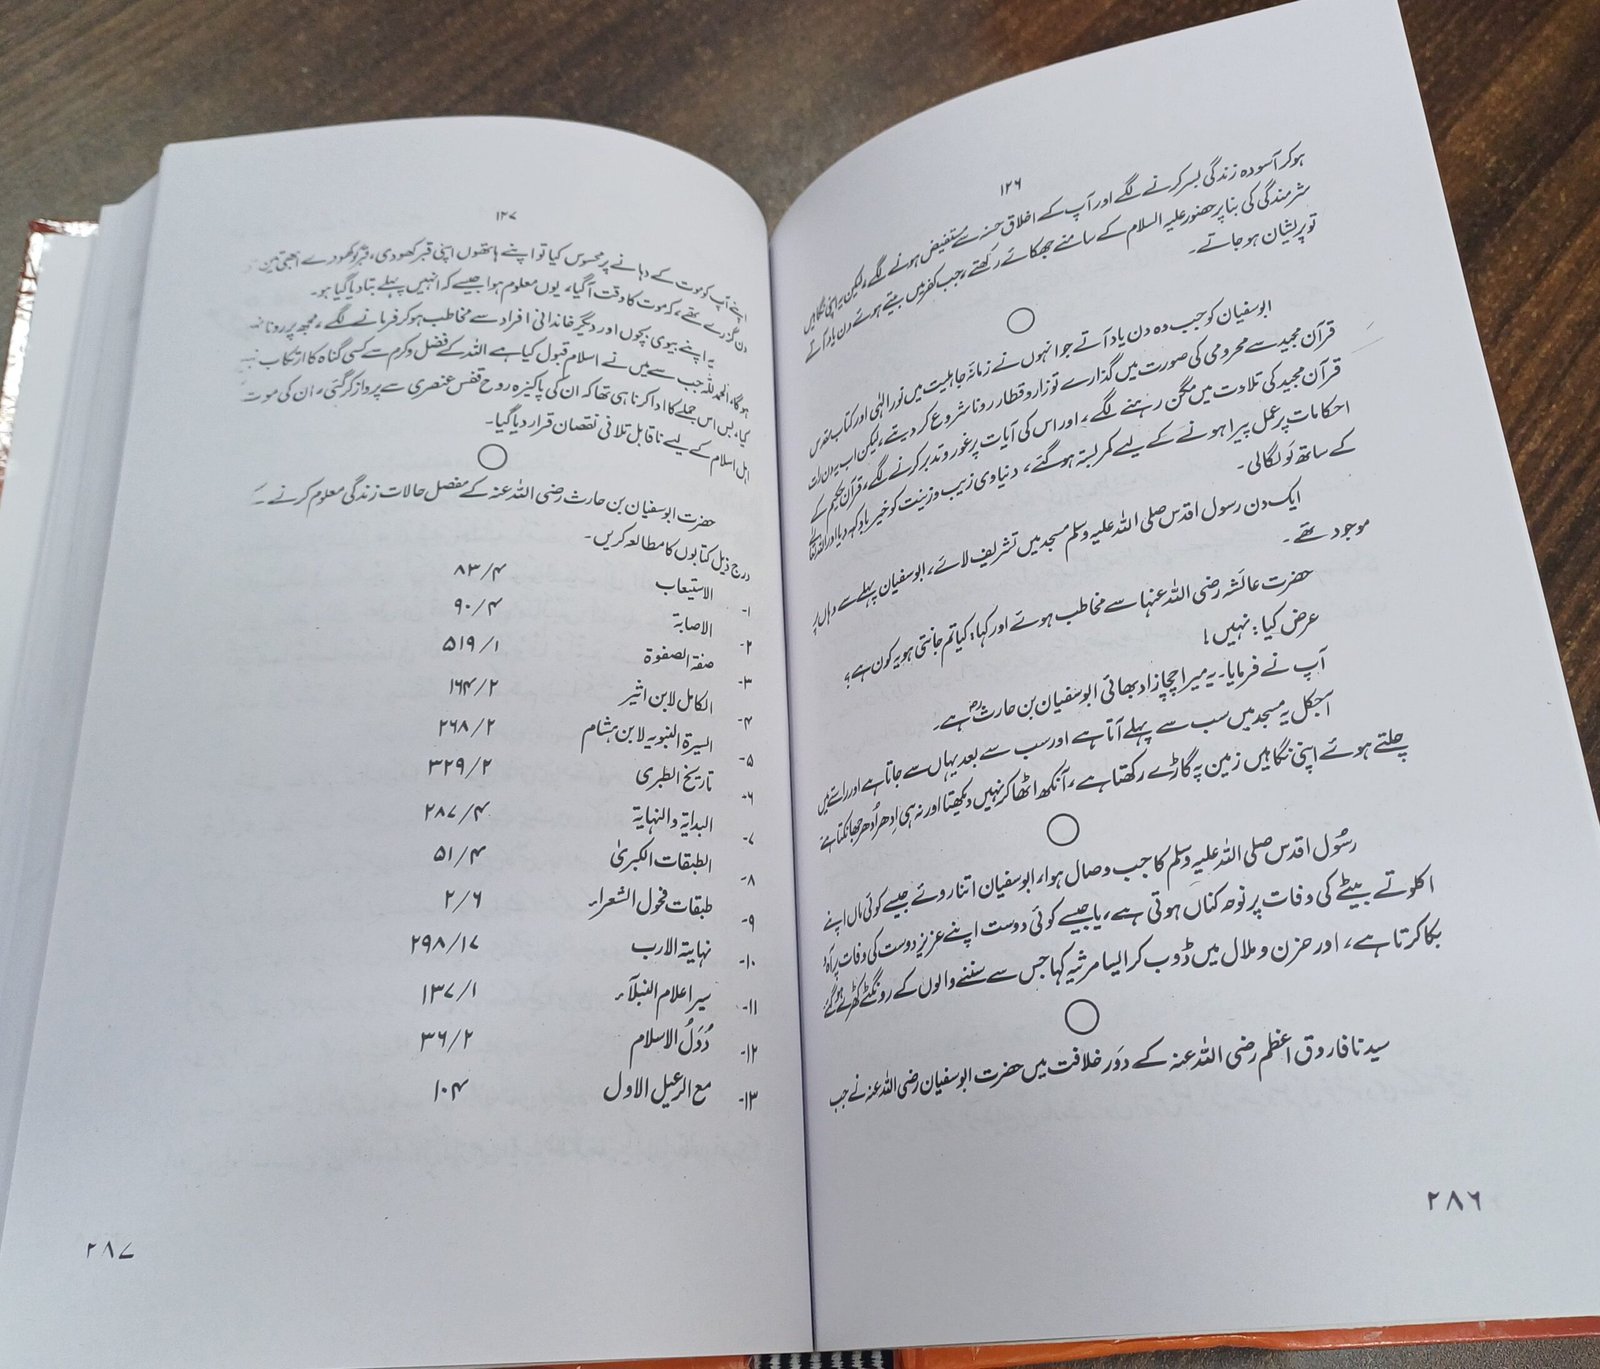 ۱۲۶
ہوکر آسودہ زندگی بسر کرنے لگے اور آپ کے اخلاق حسنہ سے مستفیض ہونے لگے، لیکن یہ اپنی نگاہیں
شرمندگی کی بنا پر حضور علیہ السلام کے سامنے جھکائے رکھتے، جب کفر میں بیتے ہوئے دن یاد آتے
تو پریشان ہو جاتے۔
ابوسفیان کو جب وہ دن یاد آتے جو انہوں نے زمانۂ جاہلیت میں نور الٰہی اور کتاب مقدس
قرآن مجید سے محرومی کی صورت میں گذارے تو زار و قطار رونا شروع کر دیتے، لیکن اب یہ دن رات
قرآن مجید کی تلاوت میں مگن رہنے لگے، اور اس کی آیات پر غور و تدبر کرنے لگے، قرآن حکیم کے
احکامات پر عمل پیرا ہونے کے لیے کمر بستہ ہو گئے، دنیاوی زیب و زینت کو خیر باد کہہ دیا اور اللہ تعالٰی
کے ساتھ لَو لگا لی۔
ایک دن رسول اقدس صلی اللہ علیہ وسلم مسجد میں تشریف لائے، ابوسفیان پہلے سے وہاں پر
موجود تھے۔
حضرت عائشہ رضی اللہ عنہا سے مخاطب ہوئے اور کہا: کیا تم جانتی ہو یہ کون ہے؟
عرض کیا: نہیں!
آپ نے فرمایا۔ یہ میرا چچا زاد بھائی ابوسفیان بن حارثؓ ہے۔
آجکل یہ مسجد میں سب سے پہلے آتا ہے اور سب سے بعد یہاں سے جاتا ہے اور راستے میں
چلتے ہوئے اپنی نگاہیں زمین پہ گاڑے رکھتا ہے، آنکھ اٹھا کر نہیں دیکھتا اور نہ ہی اِدھر اُدھر جھانکتا ہے
رسُول اقدس صلی اللہ علیہ وسلم کا جب وصال ہوا، ابوسفیان اتنا روئے جیسے کوئی ماں اپنے
اکلوتے بیٹے کی وفات پر نوحہ کناں ہوتی ہے، یا جیسے کوئی دوست اپنے عزیز دوست کی وفات پر آہ و
بکا کرتا ہے، اور حزن و ملال میں ڈوب کر ایسا مرثیہ کہا جس سے سننے والوں کے رونگٹے کھڑے ہو گئے
سیدنا فاروق اعظم رضی اللہ عنہ کے دَور خلافت میں حضرت ابوسفیان رضی اللہ عنہ نے جب
۲۸۶
۱۲۷
اپنے آپ کو موت کے دہانے پر محسوس کیا تو اپنے ہاتھوں اپنی قبر کھودی، قبر کھودے ابھی تین
دن گزرے تھے، کہ موت کا وقت آ گیا، یوں معلوم ہوا جیسے کہ انہیں پہلے بتا دیا گیا ہو۔
یہ اپنے بیوی بچوں اور دیگر خاندانی افراد سے مخاطب ہو کر فرمانے لگے، مجھ پر رونا
ہوگا، الحمد للہ جب سے میں نے اسلام قبول کیا ہے اللہ کے فضل و کرم سے کسی گناہ کا ارتکاب
کیا، بس اس جملے کا ادا کرنا ہی تھا کہ ان کی پاکیزہ روح قفس عنصری سے پرواز کر گئی، ان کی موت
اہل اسلام کے لیے ناقابل تلافی نقصان قرار دیا گیا۔
حضرت ابوسفیان بن حارث رضی اللہ عنہ کے مفصل حالات زندگی معلوم کرنے
درج ذیل کتابوں کا مطالعہ کریں۔
۱- الاستیعاب ۴/۸۳
۲- الاصابة ۴/۹۰
۳- صفة الصفوة ۱/۵۱۹
۴- الکامل لابن اثیر ۲/۱۶۴
۵- السیرة النبویه لابن ہشام ۲/۲۶۸
۶- تاریخ الطبری ۲/۳۲۹
۷- البدایة والنہایة ۴/۲۸۷
۸- الطبقات الکبریٰ ۴/۵۱
۹- طبقات فحول الشعراء ۶/۲
۱۰- نہایة الارب ۱۷/۲۹۸
۱۱- سیر اعلام النبلآء ۱/۱۳۷
۱۲- دُوَلُ الاسلام ۲/۳۶
۱۳- مع الرعیل الاول ۱۰۴
۲۸۷